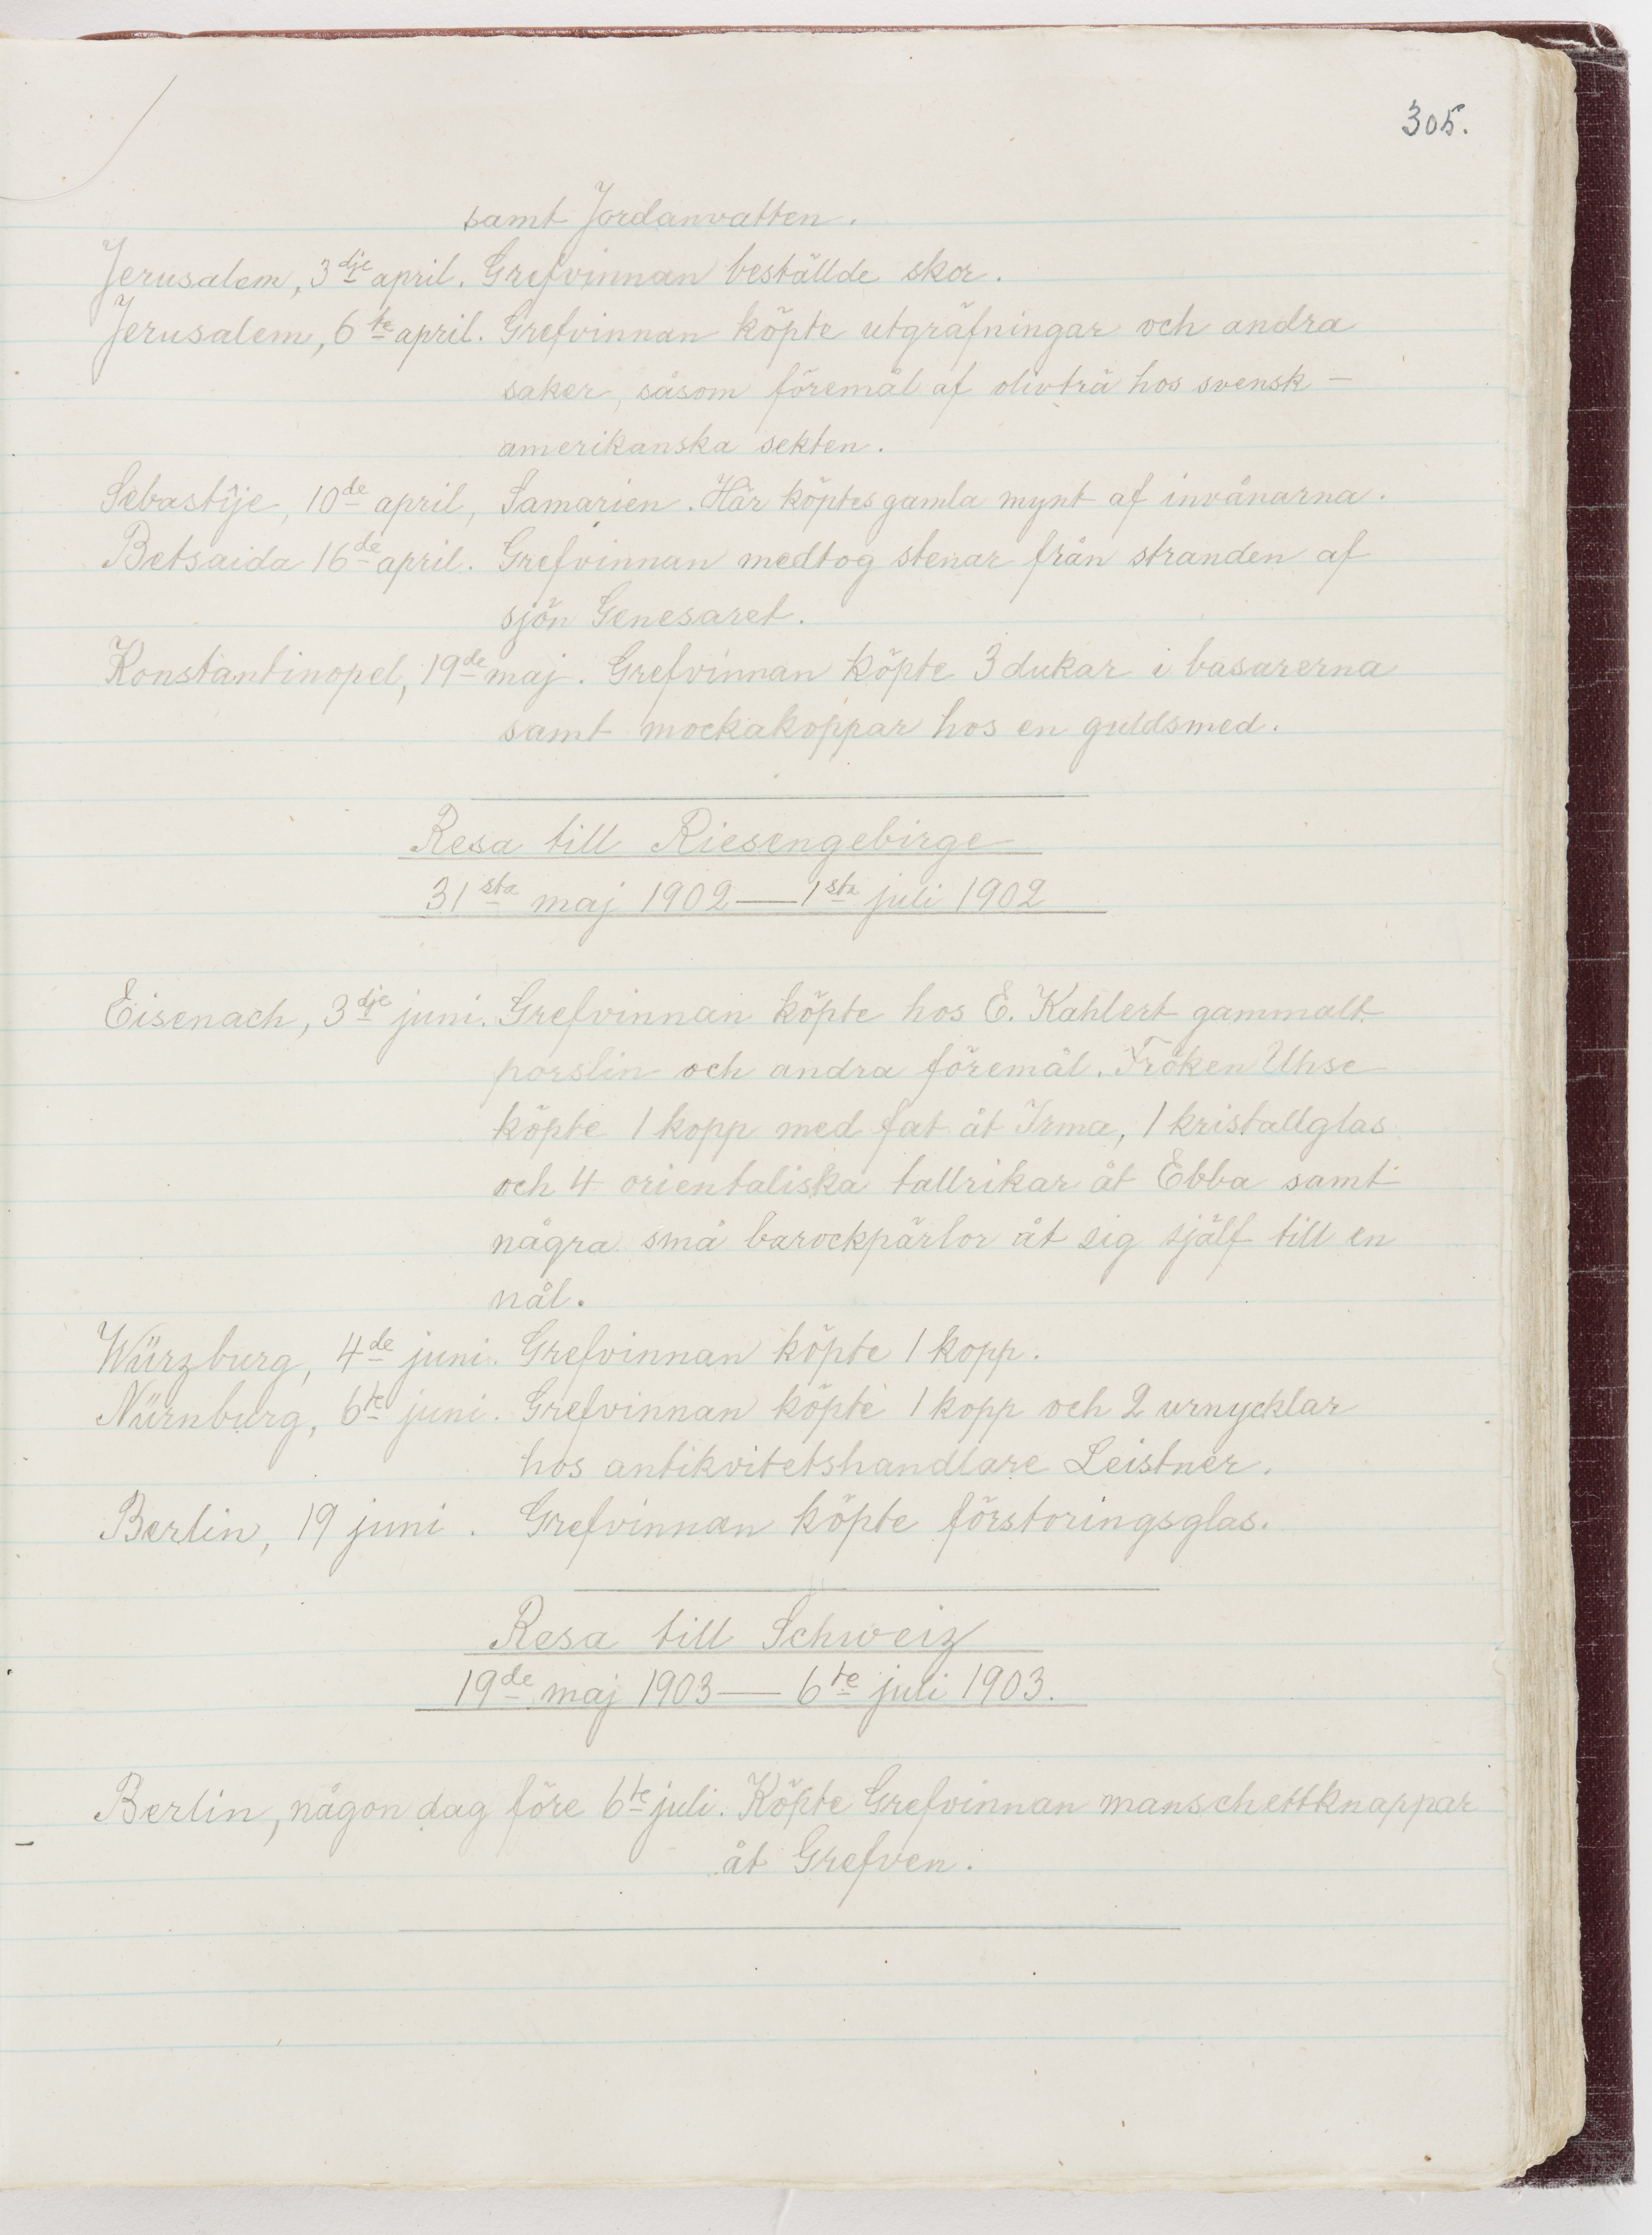 305.
samt Jordanvatten.
Jerusalem, 3dje april. Grefvinnan beställde skor.
Jerusalem, 6te april. Grefvinnan köpte utgräfningar och andra
saker, såsom föremål af olivträ hos svensk-
amerikanska sekten.
Sebastîje, 10de april, Samarien. Här köptes gamla mynt af invånarna.
Betsaida 16de april. Grefvinnan medtog stenar från stranden af
sjön Genesaret.
Konstantinopel, 19de maj. Grefvinnan köpte 3 dukar i basarerna
samt mockakoppar hos en guldsmed.
Resa till Riesengebirge
31sta maj 1902 — 1sta juli 1902
Eisenach, 3dje juni. Grefvinnan köpte hos E. Kahlert gammalt
porslin och andra föremål. Fröken Uhse
köpte 1 kopp med fat åt Irma, 1 kristallglas
och 4 orientaliska tallrikar åt Ebba samt
några små barockpärlor åt sig själf till en
nål.
Würzburg, 4de juni. Grefvinnan köpte 1 kopp.
Nürnburg, 6te juni. Grefvinnan köpte 1 kopp och 2 urnycklar
hos antikvitetshandlare Leistner.
Berlin, 19 juni. Grefvinnan köpte förstoringsglas.
Resa till Schweiz
19de maj 1903 — 6te juli 1903.
Berlin, någon dag före 6te juli. Köpte Grefvinnan manschettknappar
åt Grefven.